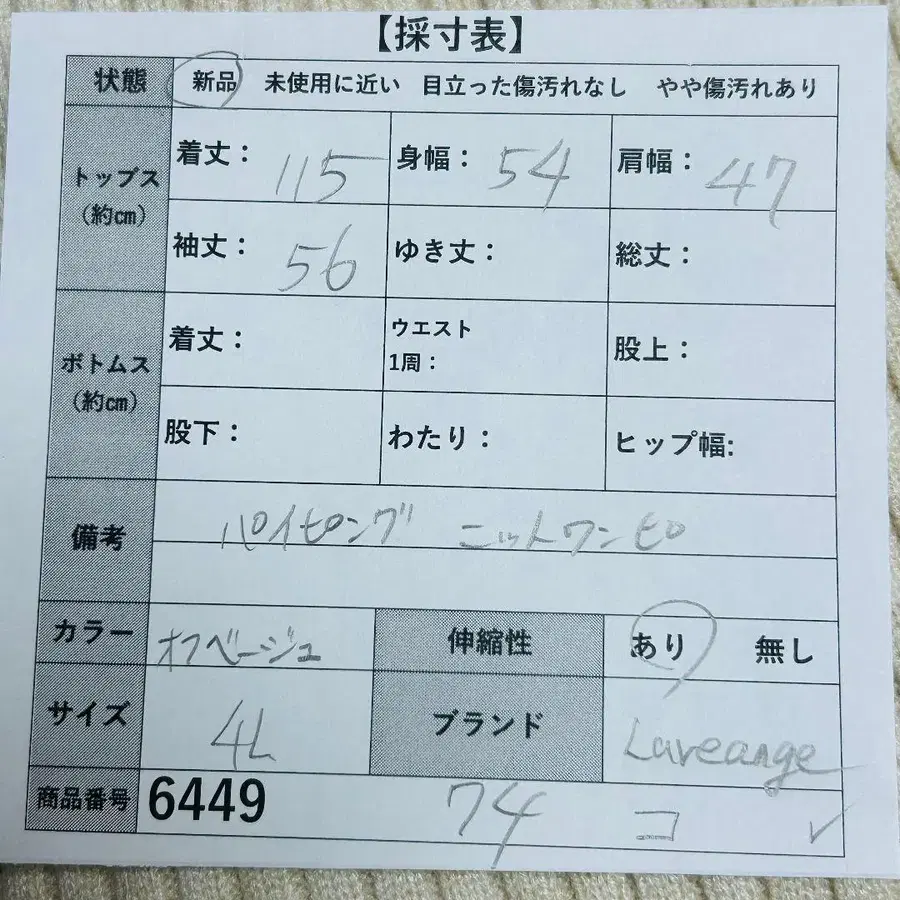 【採寸表】
状態 新品 未使用に近い 目立った傷汚れなし やや傷汚れあり
トップス(約㎝) 着丈: 115 身幅: 54 肩幅: 47
袖丈: 56 ゆき丈: 総丈:
ボトムス(約㎝) 着丈: ウエスト1周: 股上:
股下: わたり: ヒップ幅:
備考 パイピング ニットワンピ
カラー オフベージュ 伸縮性 あり 無し
サイズ 4L ブランド Laveange
商品番号 6449 74 コ ✓